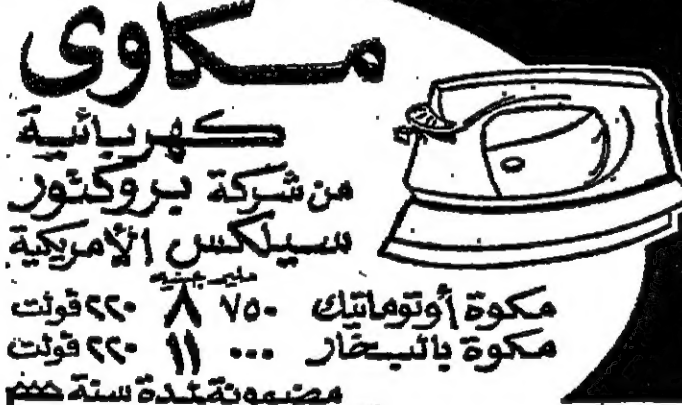 مكاوى
كهربائية
من شركة بروكتور
سيلكس الأمريكية
مليم جنيه
مكوة أوتوماتيك ٧٥٠ ٨ ٢٢٠ ڤولت
مكوة بالبخار ٠٠٠ ١١ ٢٢٠ ڤولت
مضمونة لمدة سنة